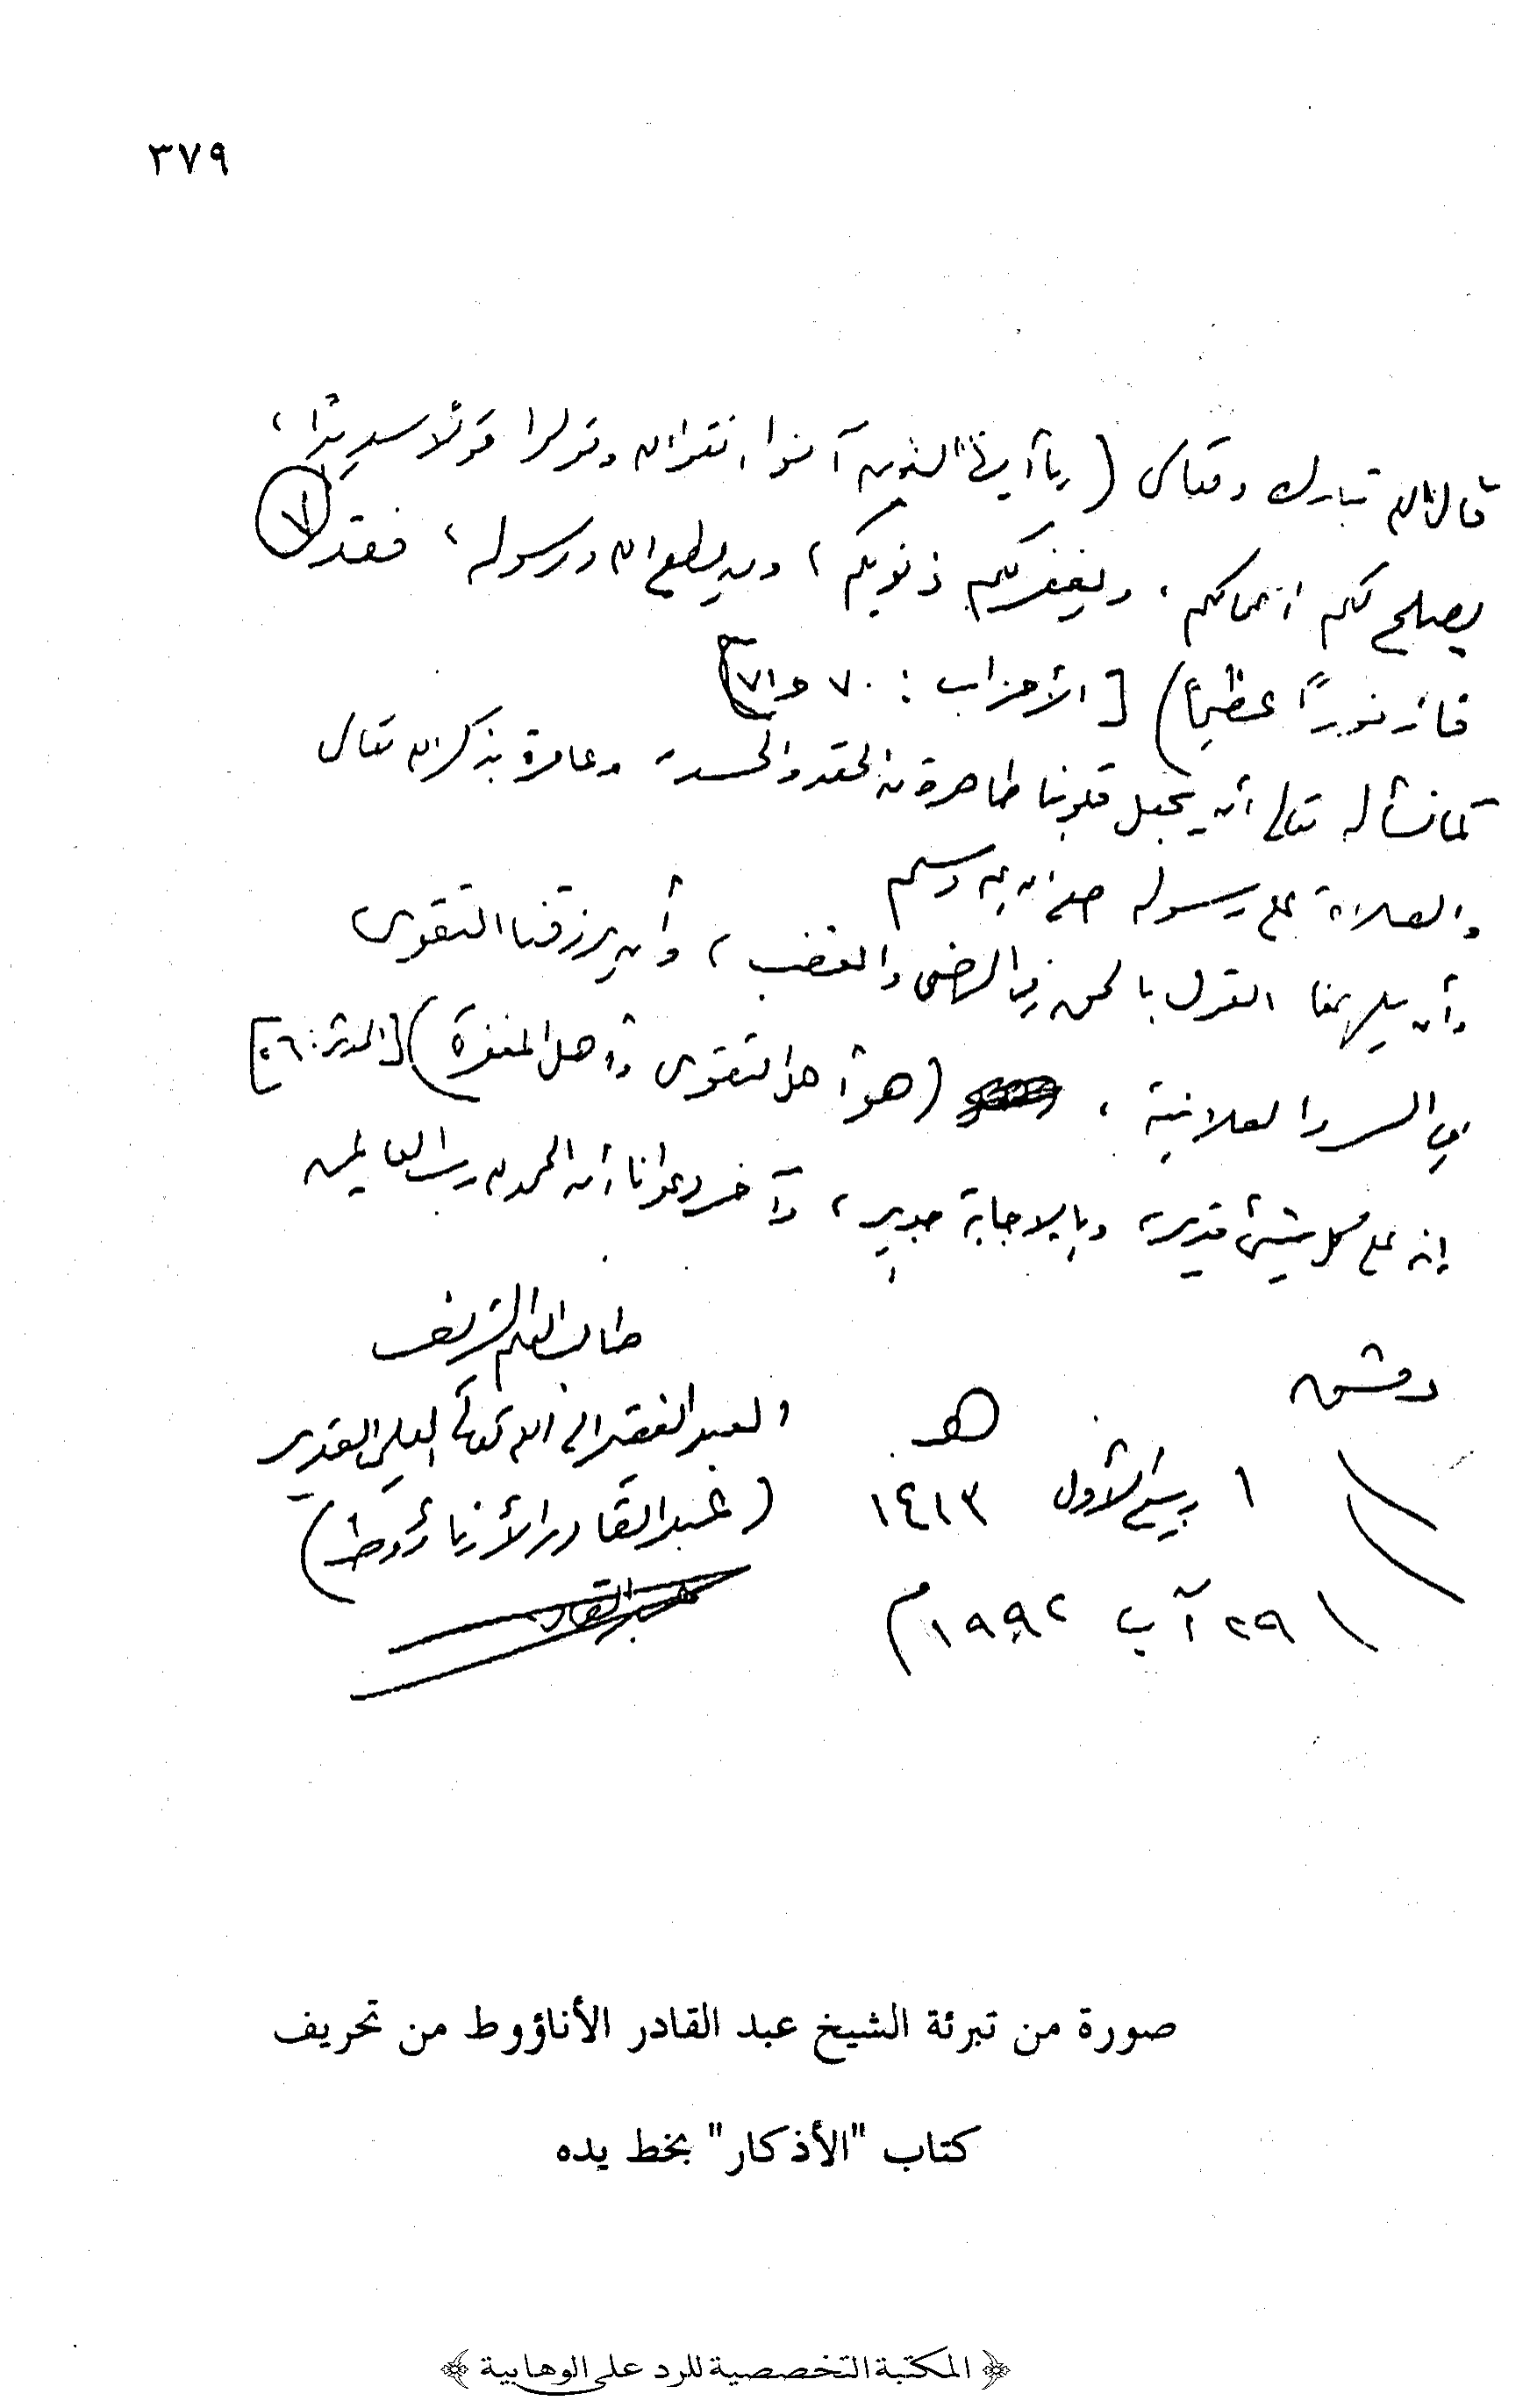 ٣٧٩
قال الله تبارك وتعالى (يا أيها الذين آمنوا اتقوا الله وقولوا قولاً سديداً،
يصلح لكم أعمالكم، ويغفر لكم ذنوبكم، ومن يطع الله ورسوله، فقد
٧
فاز فوزاً عظيماً) [الأحزاب: ٧٠ و٧١]
كما نسأله تعالى أن يجعل قلوبنا طاهرة من الحقد والحسد، وعامرة بذكر الله تعالى
والصلاة على رسوله صلى الله عليه وسلم
وأن يلهمنا القول بالحق في الرضى والغضب، وأن يرزقنا التقوى
في السر والعلانية، (هو أهل التقوى وأهل المغفرة) [المدثر: ٥٦]
إنه على كل شيء قدير، وبالإجابة جدير، وآخر دعوانا أن الحمد لله رب العالمين
طالب العلم الشريف
دمشق
العبد الفقير إلى الله تعالى العلي القدير
١ ربيع الأول ١٤١٣ هـ
(عبد القادر الأرناؤوط)
٢٩ آب ١٩٩٢ م
عبد القادر
صورة من تبرئة الشيخ عبد القادر الأناؤوط من تحريف
كتاب "الأذكار" بخط يده
﴿ المكتبة التخصصية للرد على الوهابية ﴾